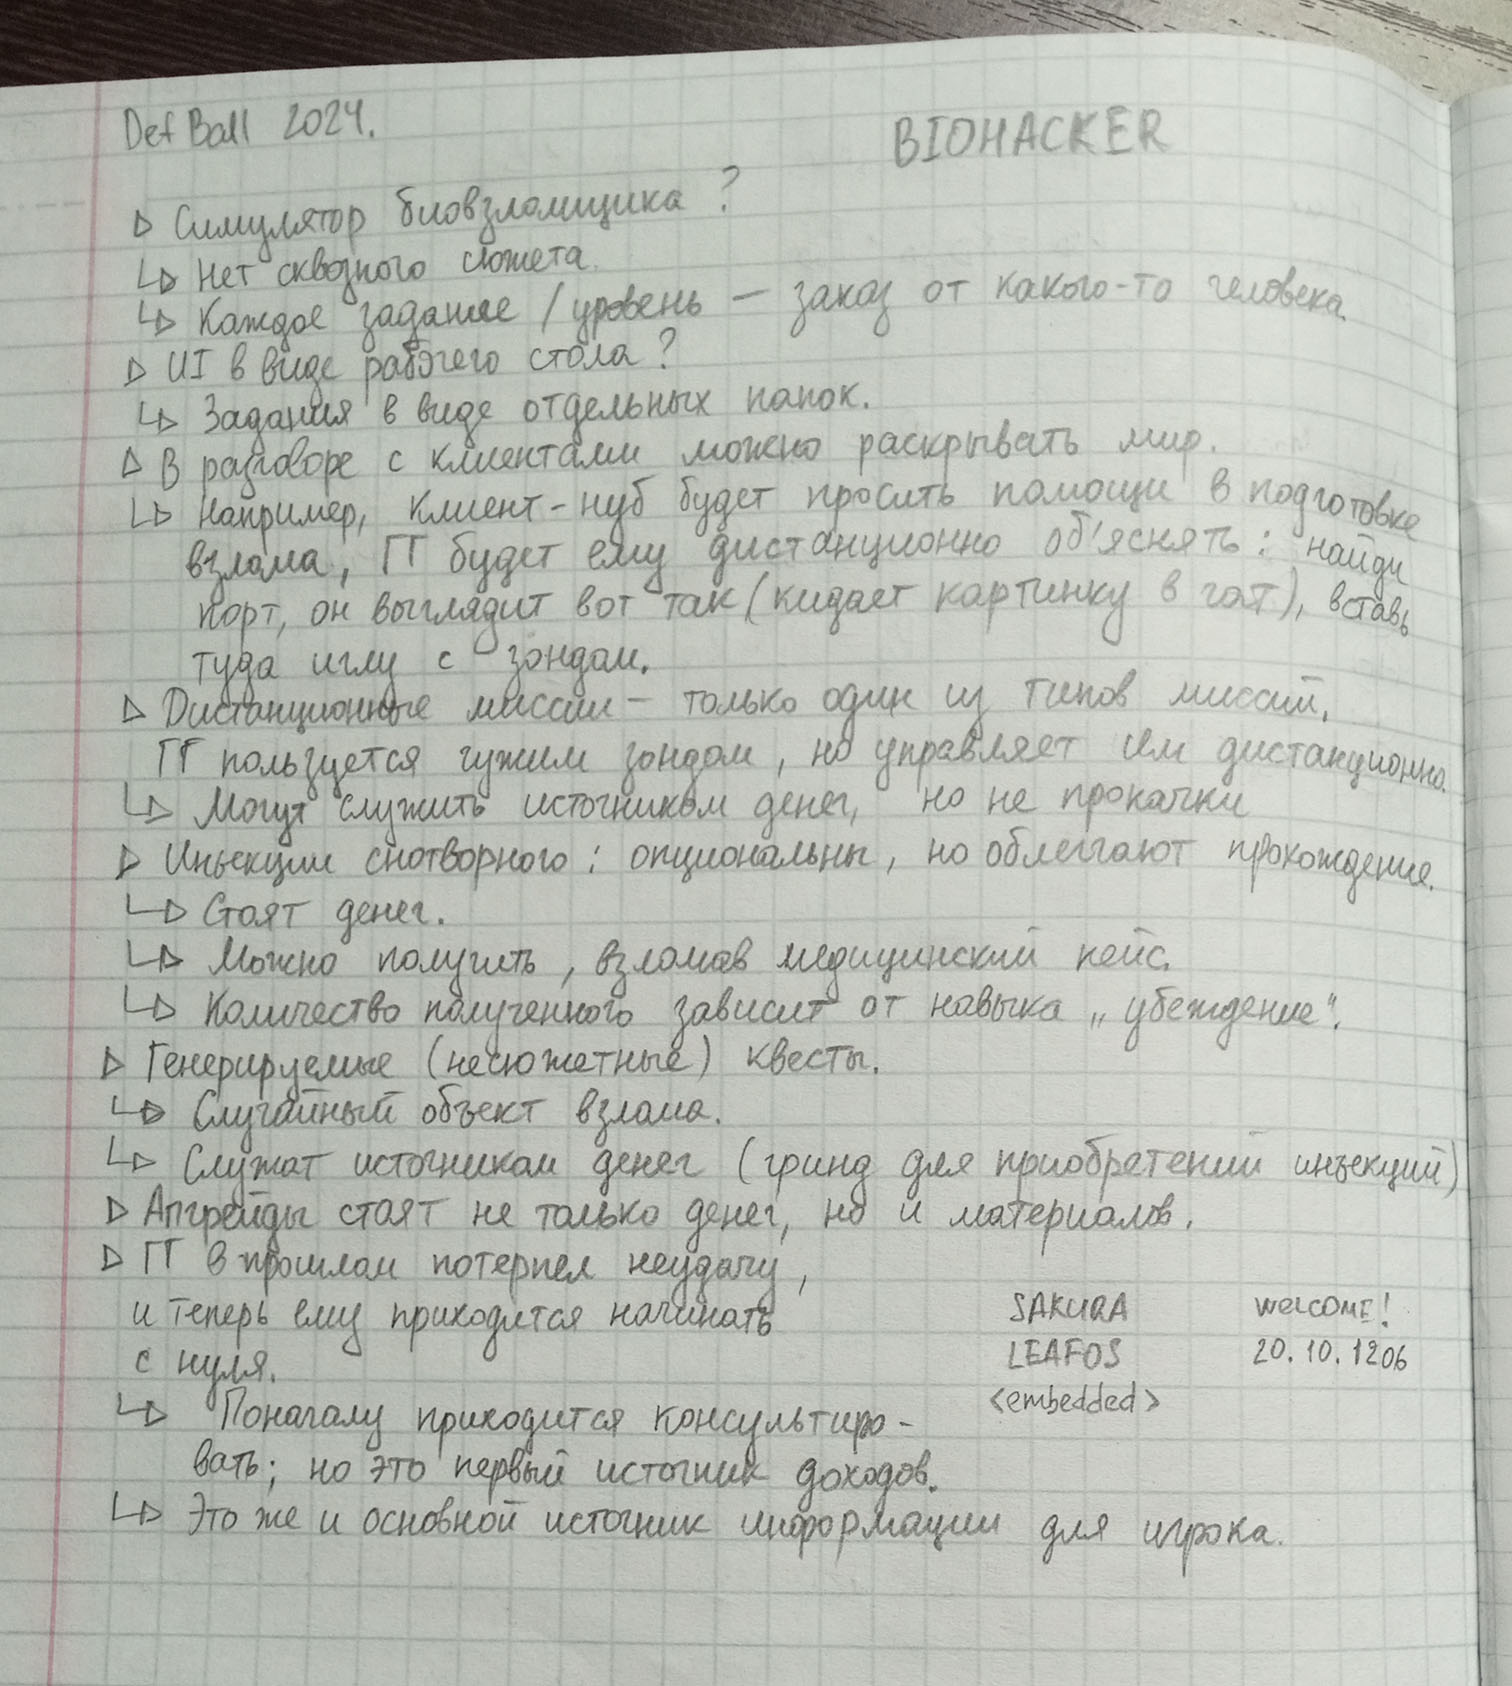 Def Ball 2024.
BIOHACKER
▷ Симулятор биовзломщика ?
↳ Нет сквозного сюжета.
↳ Каждое задание / уровень — заказ от какого-то человека.
▷ UI в виде рабочего стола ?
↳ Задания в виде отдельных папок.
▷ В разговоре с клиентами можно раскрывать мир.
↳ Например, клиент-нуб будет просить помощи в подготовке
взлома, ГГ будет ему дистанционно об'яснять: найди
порт, он выглядит вот так (кидает картинку в чат), вставь
туда иглу с зондом.
▷ Дистанционные миссии — только один из типов миссий,
ГГ пользуется чужим зондом, но управляет им дистанционно.
↳ Могут служить источником денег, но не прокачки
▷ Инъекции снотворного: опциональны, но облегчают прохождение.
↳ Стоят денег.
↳ Можно получить, взломав медицинский кейс.
↳ Количество полученного зависит от навыка „убеждение".
▷ Генерируемые (несюжетные) квесты.
↳ Случайный объект взлома.
↳ Служат источником денег (гринд для приобретений инъекций)
▷ Апгрейды стоят не только денег, но и материалов.
▷ ГГ в прошлом потерпел неудачу,
и теперь ему приходится начинать
с нуля.
↳ Поначалу приходится консультиро-
вать; но это первый источник доходов.
↳ Это же и основной источник информации для игрока.
SAKURA WELCOME!
LEAFOS 20.10.1206
<embedded>